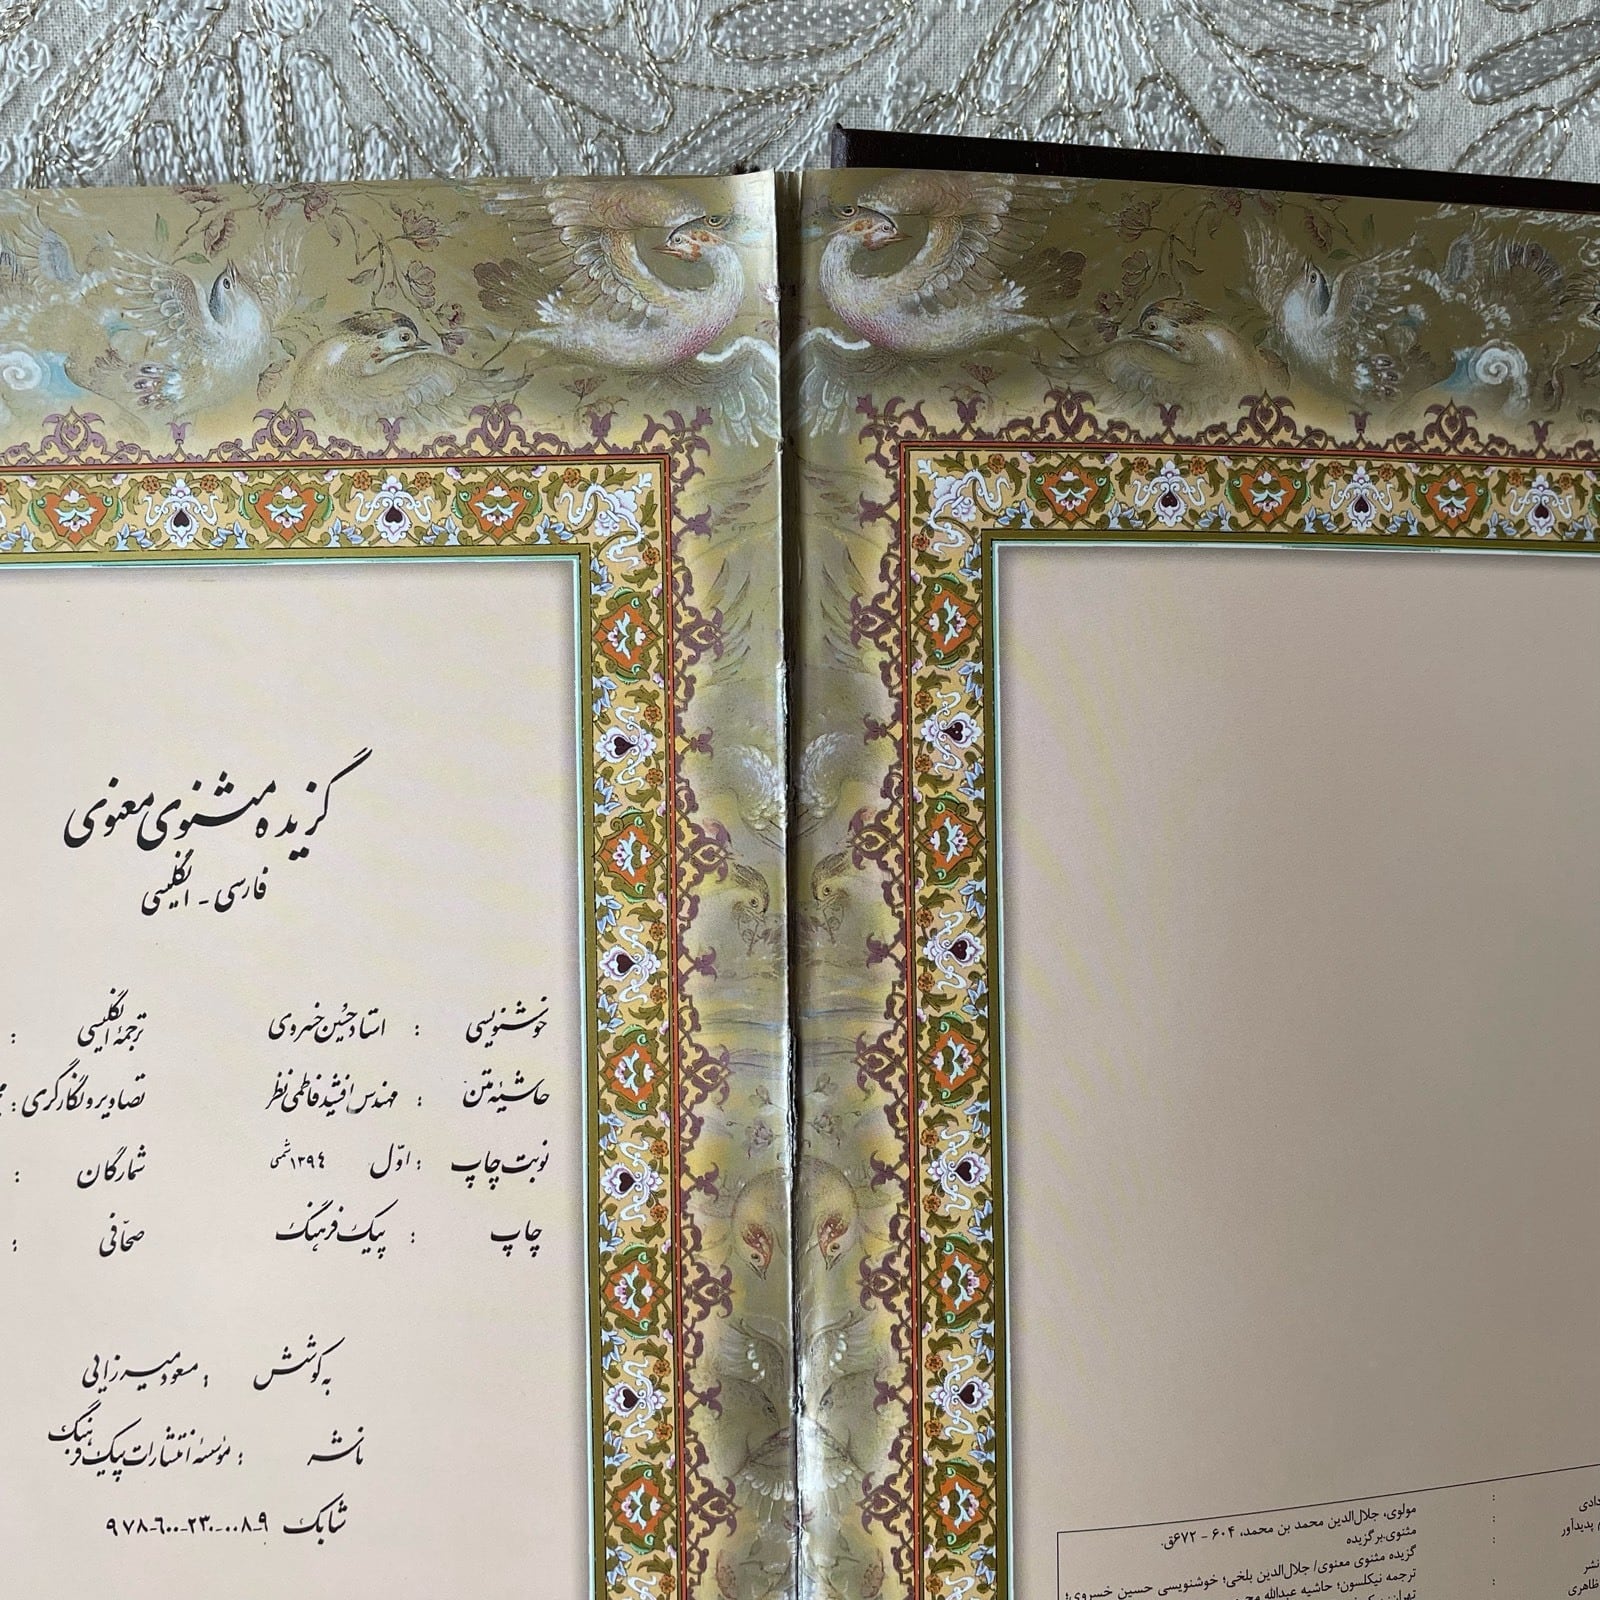 گزیده مثنوی معنوی
فارسی - انگلیسی
خوشنویسی : استاد حسین خسروی ترجمهٔ انگلیسی :
حاشیهٔ متن : مهندس افشید فاطمی نظر تصاویر و نگارگری :
نوبت چاپ : اوّل ۱۳۹۴ شمسی شمارگان :
چاپ : پیک فرهنگ صحّافی :
به کوشش : مسعود میرزایی
ناشر : مؤسسهٔ انتشارات پیک فرهنگ
شابک ۹۷۸-۶۰۰-۲۳۰-۰۰۸-۹
: مولوی، جلال‌الدین محمد بن محمد، ۶۰۴ - ۶۷۲ق.
پدیدآور : مثنوی.برگزیده
: گزیده مثنوی معنوی/ جلال‌الدین بلخی؛ خوشنویسی حسین خسروی؛
ترجمه نیکلسون؛ حاشیه عبدالله
نشر
ظاهری :